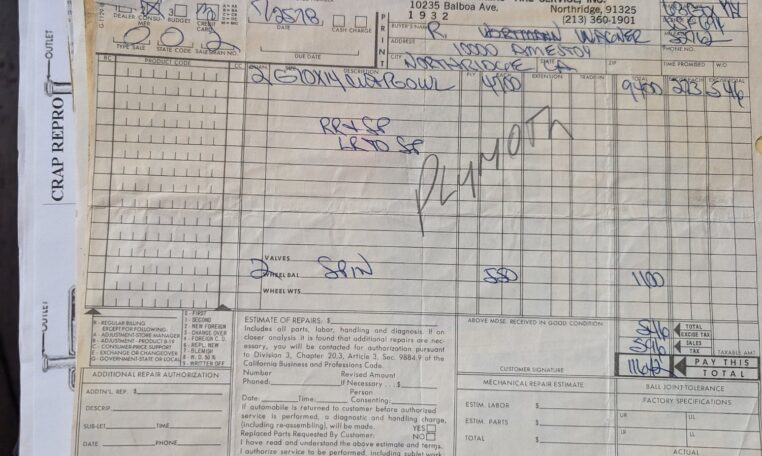 SERVICE, INC.
10235 Balboa Ave. Northridge, 91325
1 9 3 2 (213) 360-1901
DEALER CONSUMER BUDGET CREDIT CARD
DATE CASH CHARGE
DUE DATE
TYPE SALE STATE CODE SALESMAN NO.
PRINT
BUYER'S NAME R. WORTMANN WAGNER
ADDRESS 10000 AMESTOY
CITY NORTHRIDGE STATE CA ZIP
PHONE NO.
TIME PROMISED W.O.
PRODUCT CODE DESCRIPTION EACH EXTENSION TRADE-IN TOTAL
2 4700 9400 273 546
RR & SP
LR TO SP
PLYMOTH
VALVES
2 WHEEL BAL SPIN 550 1100
WHEEL WTS.
R - REGULAR BILLING
EXCEPT FOR FOLLOWING:
A - ADJUSTMENT-STORE MANAGER
B - ADJUSTMENT - PRODUCT B-19
C - CONSUMER-PRICE SUPPORT
E - EXCHANGE OR CHANGEOVER
G - GOVERNMENT-STATE OR LOCAL
0 - FIRST
1 - SECOND
2 - NEW FOREIGN
3 - CHANGE OVER
4 - FOREIGN C.D.
6 - REPL. NEW
7 - BLEMISH
8 - W.D. 50%
9 - WRITTEN OFF
ESTIMATE OF REPAIRS: $
Includes all parts, labor, handling and diagnosis. If on
closer analysis it is found that additional repairs are nec-
essary, you will be contacted for authorization pursuant
to Division 3, Chapter 20.3, Article 3, Sec. 9884.9 of the
California Business and Professions Code.
Number Revised Amount
Phoned: If Necessary . . . $
Person
Date: Time: Consenting:
If automobile is returned to customer before authorized
service is performed, a diagnostic and handling charge,
(including re-assembling), will be made. YES
Replaced Parts Requested By Customer: NO
I have read and understand the above estimate and terms.
I authorize service to be performed, including sublet work
ABOVE MDSE. RECEIVED IN GOOD CONDITION
CUSTOMER SIGNATURE
546 TOTAL EXCISE TAX
SALES TAX TAXABLE AMT
PAY THIS TOTAL
ADDITIONAL REPAIR AUTHORIZATION
ADDTN'L REP. $
DESCRIP.
SUB-LET TIME
DATE PHONE
MECHANICAL REPAIR ESTIMATE
ESTIM. LABOR $
ESTIM. PARTS $
TOTAL $
BALL JOINT TOLERANCE
FACTORY SPECIFICATIONS
UR UL
LR LL
ACTUAL
OUTLET
CRAP REPRO
OUTLET